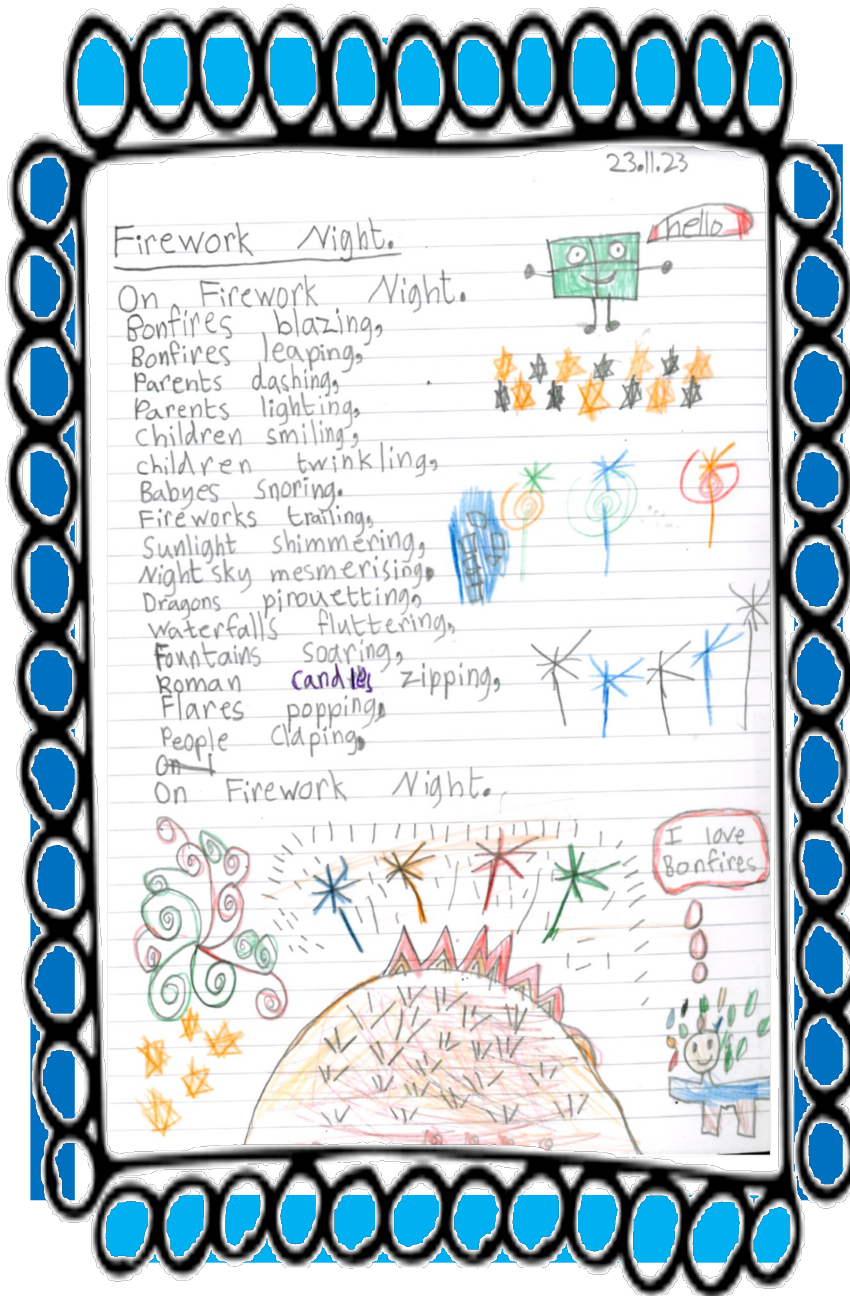 23.11.23
Firework Night.
hello
On Firework Night.
Bonfires blazing,
Bonfires leaping,
Parents dashing,
Parents lighting,
children smiling,
children twinkling,
Babyes snoring.
Fireworks trailing,
Sunlight shimmering,
Night sky mesmerising.
Dragons pirouetting,
Waterfalls fluttering,
Fountains soaring,
Roman candles zipping,
Flares popping,
People Claping,
On
On Firework Night.
I love
Bonfires